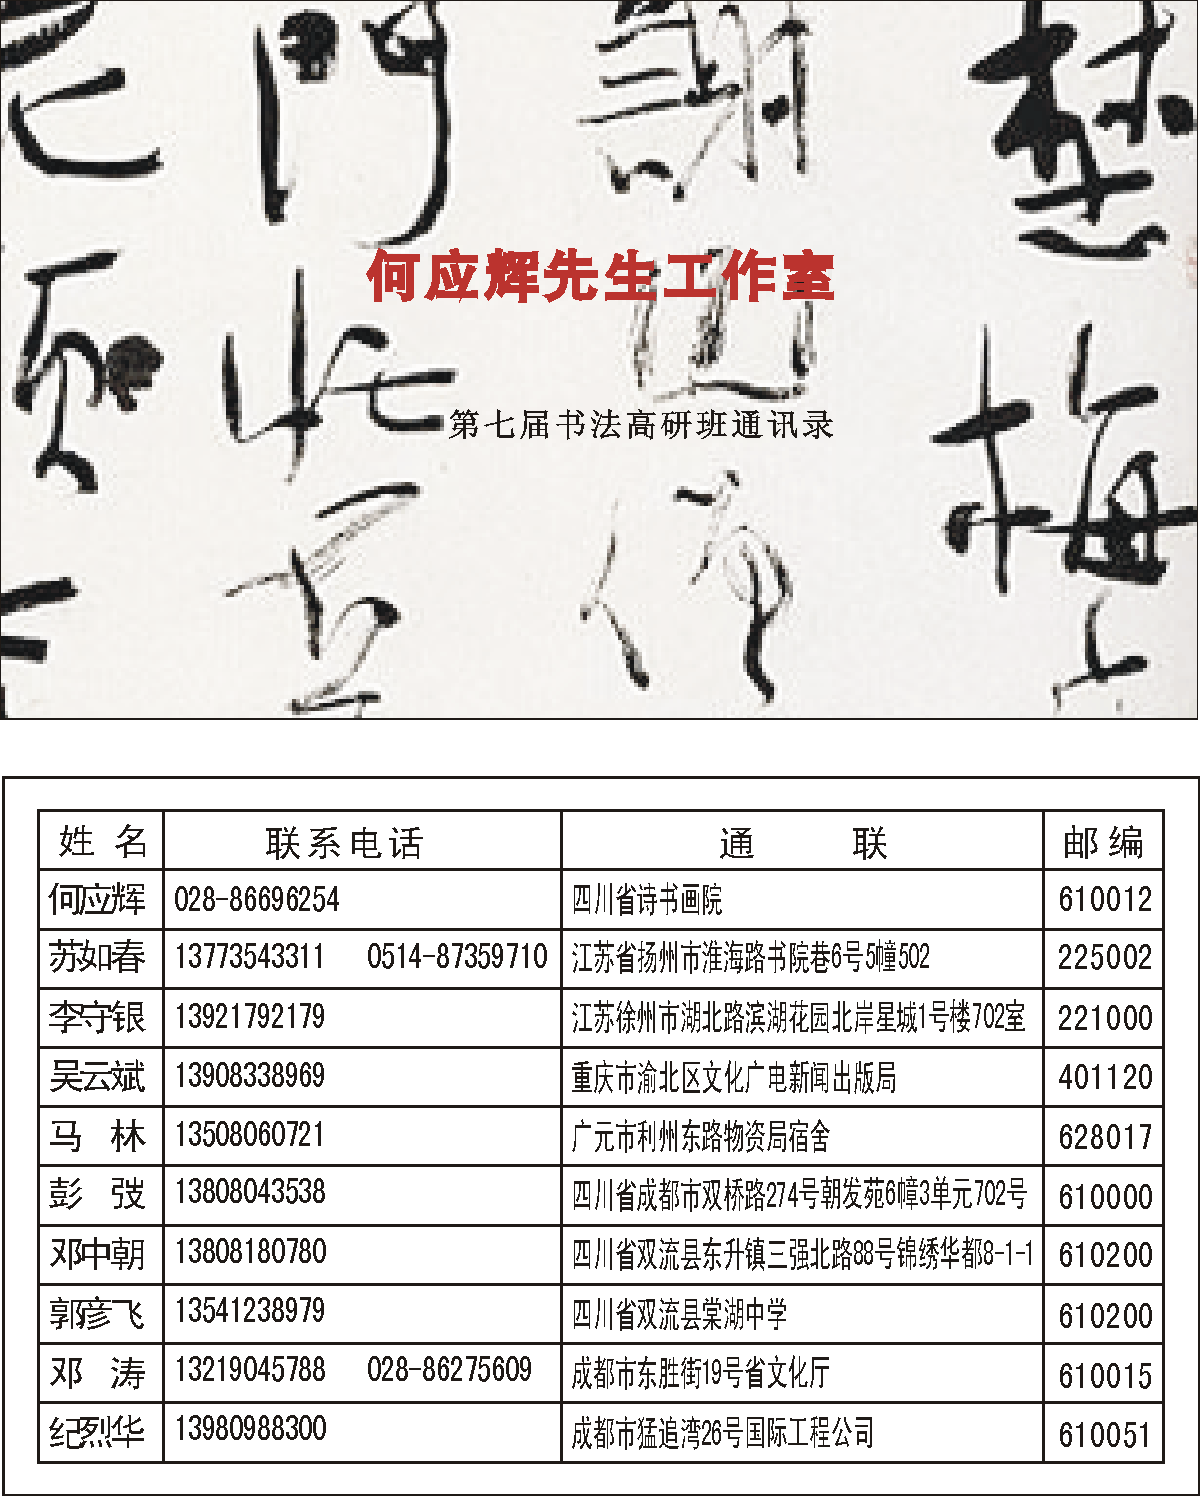 何应辉先生工作室
第七届书法高研班通讯录
姓 名 联系电话 通 联 邮编
何应辉 028-86696254 四川省诗书画院 610012
苏如春 13773543311 0514-87359710 江苏省扬州市淮海路书院巷6号5幢502 225002
李守银 13921792179 江苏徐州市湖北路滨湖花园北岸星城1号楼702室 221000
吴云斌 13908338969 重庆市渝北区文化广电新闻出版局 401120
马 林 13508060721 广元市利州东路物资局宿舍 628017
彭 弢 13808043538 四川省成都市双桥路274号朝发苑6幢3单元702号 610000
邓中朝 13808180780 四川省双流县东升镇三强北路88号锦绣华都8-1-1 610200
郭彦飞 13541238979 四川省双流县棠湖中学 610200
邓 涛 13219045788 028-86275609 成都市东胜街19号省文化厅 610015
纪烈华 13980988300 成都市猛追湾26号国际工程公司 610051